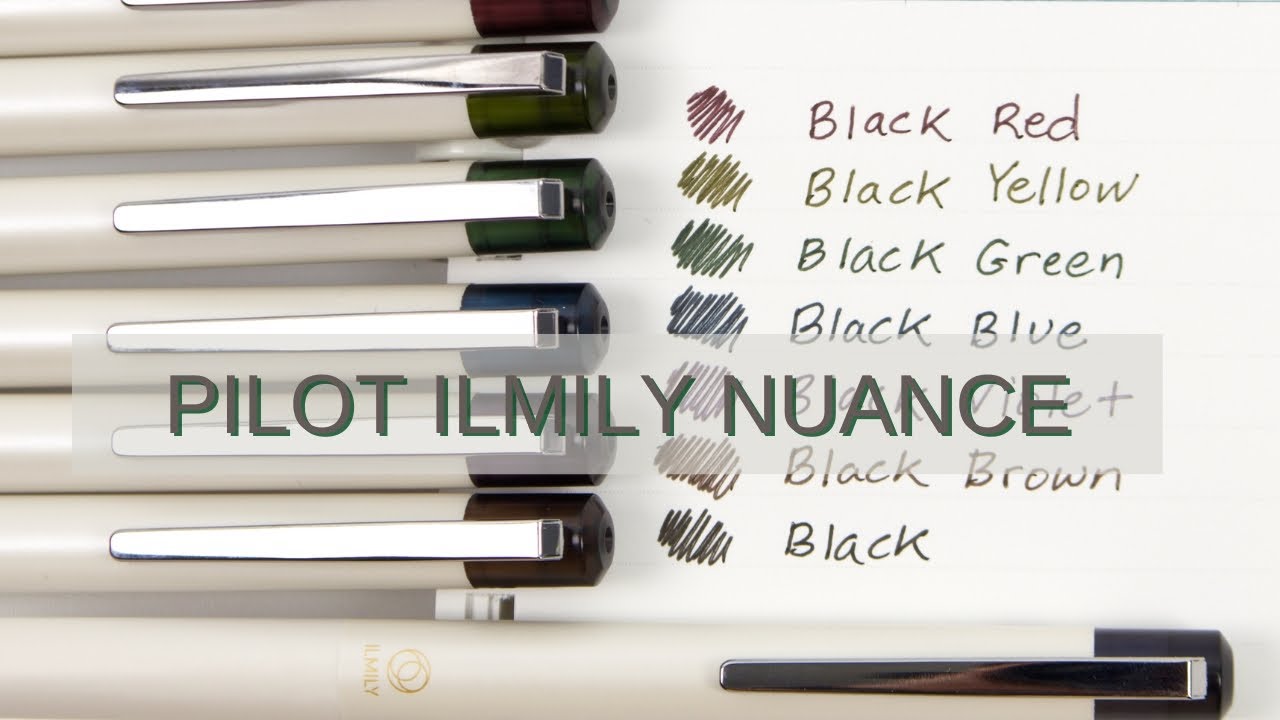 Black Red
Black Yellow
Black Green
Black Blue
PILOT ILMILY NUANCE
Black Violet
Black Brown
Black
ILMILY